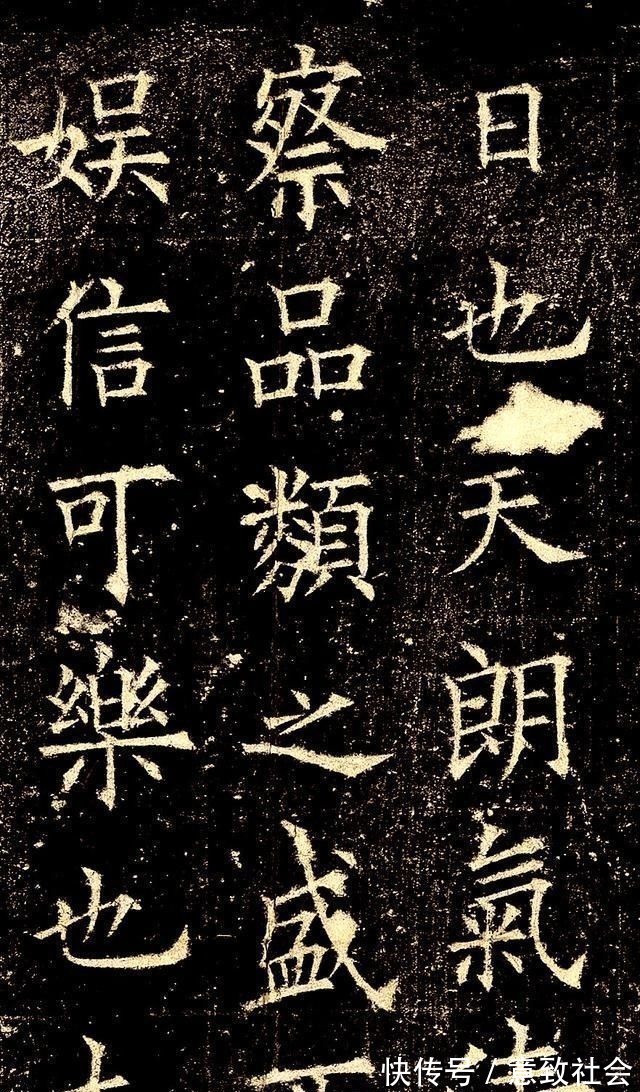 日也天朗氣
察品類之盛
娯信可樂也
快传号/意致社会